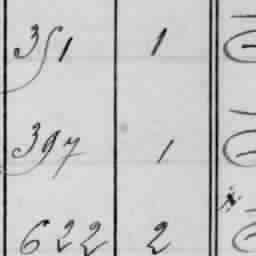 351 1
397 1
622 2